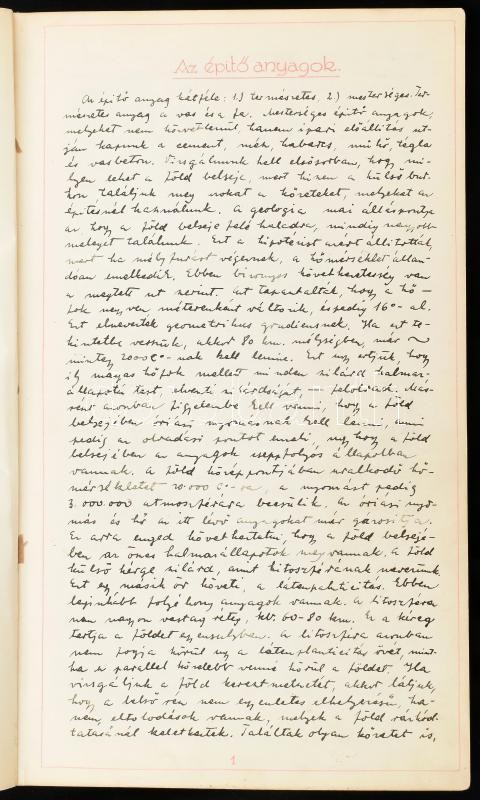 Az építő anyagok.
Az építő anyag kétféle: 1.) természetes, 2.) mesterséges. Ter-
mészetes anyag a vas és a fa. Mesterséges építő anyagok,
melyeket nem közvetlenül, hanem ipari előállítás ut-
ján kapunk a cement, mész, habarcs, műkő, tégla
és vasbeton. Vizsgálnunk kell elsősorban, hogy mi-
lyen lehet a föld belseje, mert hiszen a külső bur-
kon találjuk meg azokat a kőzeteket, melyeket az
építésnél használunk. A geologia mai álláspontja
az, hogy a föld belseje felé haladva, mindig nagyobb
meleget találunk. Ezt a hipotézist azért állították,
mert ha mélyfurást végeznek, a hőmérséklet állan-
dóan emelkedik. Ebben bizonyos következetesség van
a megtett ut szerint. Azt tapasztalták, hogy a hő-
fok negyven méterenként változik, és pedig 1 C°-al.
Ezt elnevezték geometrikus gradiensnek. Ha ezt te-
kintetbe vesszük, akkor 80 km. mélységben, már ~
mintegy 2000 C°-nak kell lennie. Ezt ugy értjük, hogy
ily magas hőfok mellett minden szilárd halmaz-
állapotú test, elveszti szilárdságát, felolvad. Más-
részt azonban figyelembe kell venni, hogy a föld
belsejében óriási nyomásnak kell lenni, ami
pedig az olvadási pontot emeli, ugy hogy a föld
belsejében az anyagok cseppfolyós állapotban
vannak. A föld középpontjában uralkodó hő-
mérsékletet 20.000 C°-ra, a nyomást pedig
3.000.000 atmoszférára becsülik. Az óriási nyo-
más és hő az itt lévő anyagokat már gázosítja.
Ez arra enged következtetni, hogy a föld belsejé-
ben az összes halmazállapotok megvannak. A föld
külső kérge szilárd, amit litoszférának nevezünk.
Ezt egy másik öv követi, a látenplaszticitás. Ebben
leginkább folyékony anyagok vannak. A litoszféra
nem nagyon vastag réteg, kb. 60-80 km. Ez a kéreg
tartja a földet egyensulyban. A litoszféra azonban
nem fogja körül ugy a látenplaszticitás övét, mint-
ha ez parallel közelebb venné körül a földet. Ha
vizsgáljuk a föld keresztmetszetét, akkor látjuk,
hogy a belső rén nem egyenletes elhelyezésü, ha-
nem eltolódások vannak, melyek a föld
tatásánál keletkeztek. Találtak olyan kőzetet is,
1